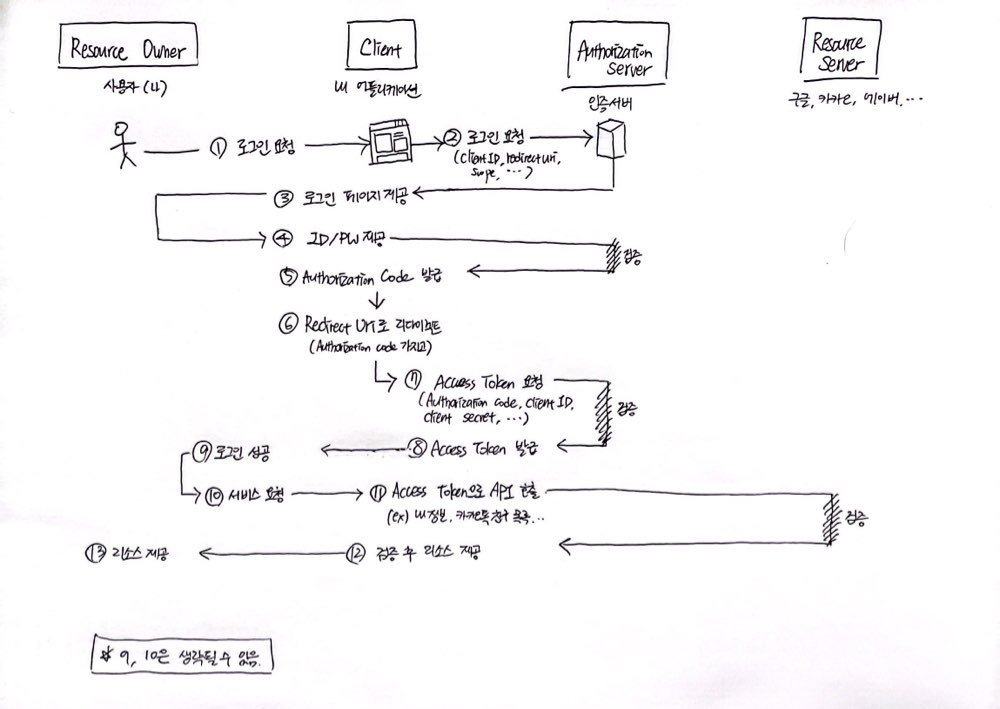 Resource Owner
Client
Authorization
Server
Resource
Server
사용자 (나)
내 어플리케이션
인증서버
구글, 카카오, 네이버, ...
① 로그인 요청
② 로그인 요청
(Client ID, redirect uri,
scope, ...)
③ 로그인 페이지 제공
④ ID/PW 제공
검증
⑤ Authorization Code 발급
⑥ Redirect Uri로 리다이렉트
(Authorization code 가지고)
⑦ Access Token 요청
(Authorization code, client ID,
client secret, ...)
검증
⑧ Access Token 발급
⑨ 로그인 성공
⑩ 서비스 요청
⑪ Access Token으로 API 호출
(ex) 내 정보, 카카오톡 친구 목록...
검증
⑫ 검증 후 리소스 제공
⑬ 리소스 제공
* 9, 10은 생략될 수 있음.